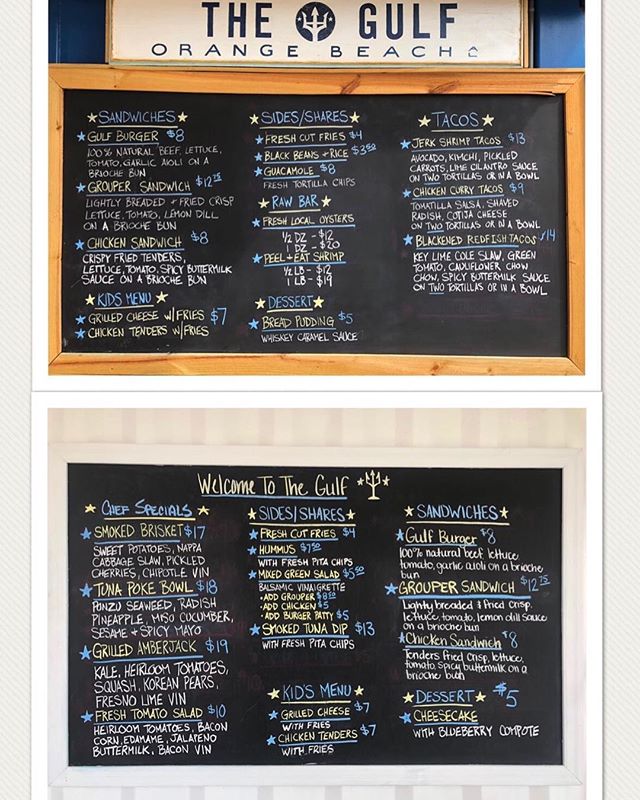 THE GULF
ORANGE BEACH
SANDWICHES
GULF BURGER $8
100% NATURAL BEEF, LETTUCE,
TOMATO, GARLIC AIOLI ON A
BRIOCHE BUN
GROUPER SANDWICH $12.75
LIGHTLY BREADED + FRIED CRISP
LETTUCE, TOMATO, LEMON DILL
ON A BRIOCHE BUN
CHICKEN SANDWICH $8
CRISPY FRIED TENDERS,
LETTUCE, TOMATO, SPICY BUTTERMILK
SAUCE ON A BRIOCHE BUN
KIDS MENU
GRILLED CHEESE W/FRIES $7
CHICKEN TENDERS W/FRIES
SIDES/SHARES
FRESH CUT FRIES $4
BLACK BEANS + RICE $3.50
GUACAMOLE $8
FRESH TORTILLA CHIPS
RAW BAR
FRESH LOCAL OYSTERS
1/2 DZ - $12
1 DZ - $20
PEEL + EAT SHRIMP
1/2 LB - $12
1 LB - $19
DESSERT
BREAD PUDDING $5
WHISKEY CARAMEL SAUCE
TACOS
JERK SHRIMP TACOS $13
AVOCADO, KIMCHI, PICKLED
CARROTS, LIME CILANTRO SAUCE
ON TWO TORTILLAS OR IN A BOWL
CHICKEN CURRY TACOS $9
TOMATILLA SALSA, SHAVED
RADISH, COTIJA CHEESE
ON TWO TORTILLAS OR IN A BOWL
BLACKENED REDFISH TACOS $14
KEY LIME COLE SLAW, GREEN
TOMATO, CAULIFLOWER CHOW
CHOW, SPICY BUTTERMILK SAUCE
ON TWO TORTILLAS OR IN A BOWL
Welcome To The Gulf
CHEF SPECIALS
SMOKED BRISKET $17
SWEET POTATOES, NAPPA
CABBAGE SLAW, PICKLED
CHERRIES, CHIPOTLE VIN
TUNA POKE BOWL $18
PONZU SEAWEED, RADISH
PINEAPPLE, MISO CUCUMBER,
SESAME + SPICY MAYO
GRILLED AMBERJACK $19
KALE, HEIRLOOM TOMATOES,
SQUASH, KOREAN PEARS,
FRESNO LIME VIN
FRESH TOMATO SALAD $10
HEIRLOOM TOMATOES, BACON
CORN, EDAMAME, JALAPENO
BUTTERMILK, BACON VIN
SIDES/SHARES
FRESH CUT FRIES $4
HUMMUS $7.50
WITH FRESH PITA CHIPS
MIXED GREEN SALAD $5.50
BALSAMIC VINAIGRETTE
• ADD GROUPER $8.50
• ADD CHICKEN $5
• ADD BURGER PATTY $5
SMOKED TUNA DIP $13
WITH FRESH PITA CHIPS
KID'S MENU
GRILLED CHEESE $7
WITH FRIES
CHICKEN TENDERS $7
WITH FRIES
SANDWICHES
Gulf Burger $8
100% natural beef lettuce
tomato, garlic aioli on a brioche
bun
GROUPER SANDWICH $12.75
Lightly breaded & fried crisp.
lettuce, tomato, lemon dill sauce
on a brioche bun
Chicken Sandwich $8
Tenders fried crisp, lettuce,
tomato, spicy buttermilk on a
brioche bun
DESSERT $5
CHEESECAKE
WITH BLUEBERRY COMPOTE